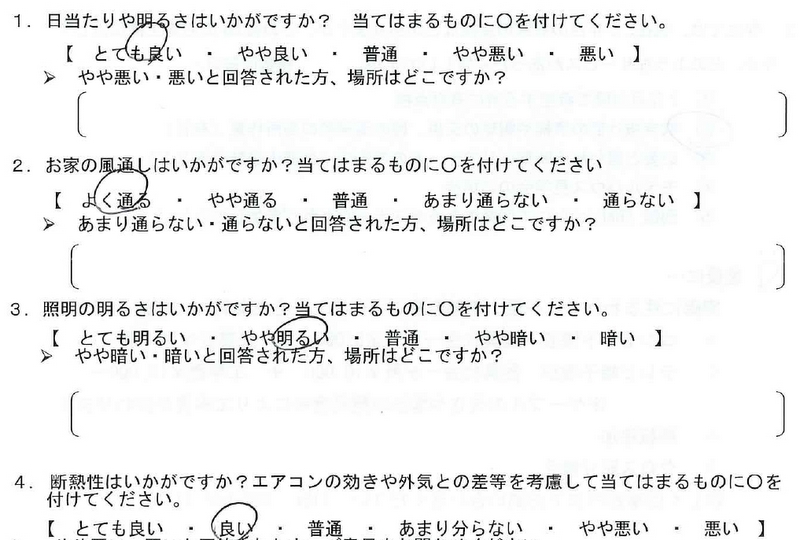 1．日当たりや明るさはいかがですか？　当てはまるものに〇を付けてください。
【　とても良い　・　やや良い　・　普通　・　やや悪い　・　悪い　】
➢　やや悪い・悪いと回答された方、場所はどこですか？
2．お家の風通しはいかがですか？当てはまるものに〇を付けてください
【　よく通る　・　やや通る　・　普通　・　あまり通らない　・　通らない　】
➢　あまり通らない・通らないと回答された方、場所はどこですか？
3．照明の明るさはいかがですか？当てはまるものに〇を付けてください。
【　とても明るい　・　やや明るい　・　普通　・　やや暗い　・　暗い　】
➢　やや暗い・暗いと回答された方、場所はどこですか？
4．断熱性はいかがですか？エアコンの効きや外気との差等を考慮して当てはまるものに〇を
付けてください。
【　とても良い　・　良い　・　普通　・　あまり分らない　・　やや悪い　・　悪い　】